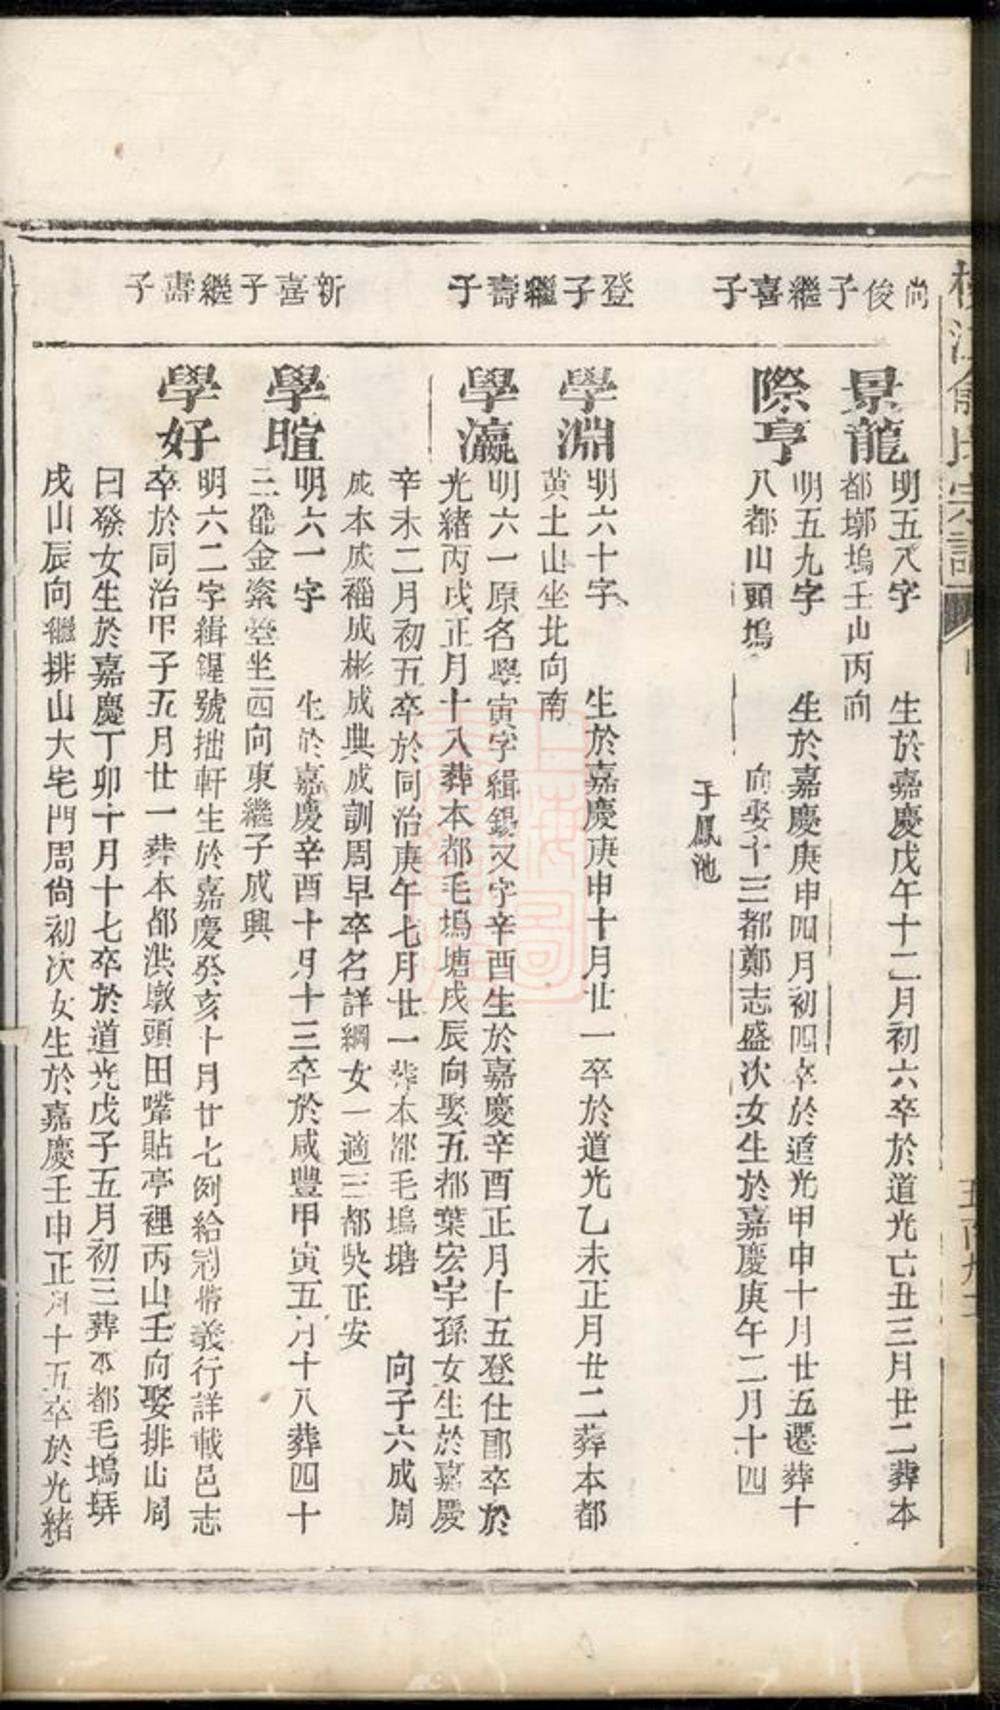 尚俊子繼喜子
登子繼壽子
新喜子繼壽子
景龍
明五八字 生於嘉慶戊午十二月初六卒於道光亡丑三月廿二葬本
都塢壬山丙向
際亨
明五九字 生於嘉慶庚申四月初四卒於道光甲申十月廿五遷葬十
八都山頭塢 向娶十三都鄭志盛次女生於嘉慶庚午二月十四
子鳳池
學淵
明六十字 生於嘉慶庚申十月廿一卒於道光乙未正月廿二葬本都
黃土山坐北向南
學瀛
明六一原名學寅字緝錫又字辛酉生於嘉慶辛酉正月十五登仕郎卒於
光緒丙戌正月十八葬本都毛塢塘戌辰向娶五都葉宏宇孫女生於嘉慶
辛未二月初五卒於同治庚午七月廿一葬本都毛塢塘 向子六成周
成本成福成彬成典成訓周早卒名詳綱女一適三都吳正安
學暄
明六一字 生於嘉慶辛酉十月十三卒於咸豐甲寅五月十八葬四十
三都金盤坐西向東繼子成興
學好
明六二字緝鍟號拙軒生於嘉慶癸亥十月廿七例給冠帶義行詳載邑志
卒於同治甲子五月廿一葬本都洪墩頭田塝貼亭裡丙山壬向娶排山周
曰發女生於嘉慶丁卯十月十七卒於道光戊子五月初三葬本都毛塢塝
戌山辰向繼排山大宅門周尚初次女生於嘉慶壬申正月十五卒於光緒